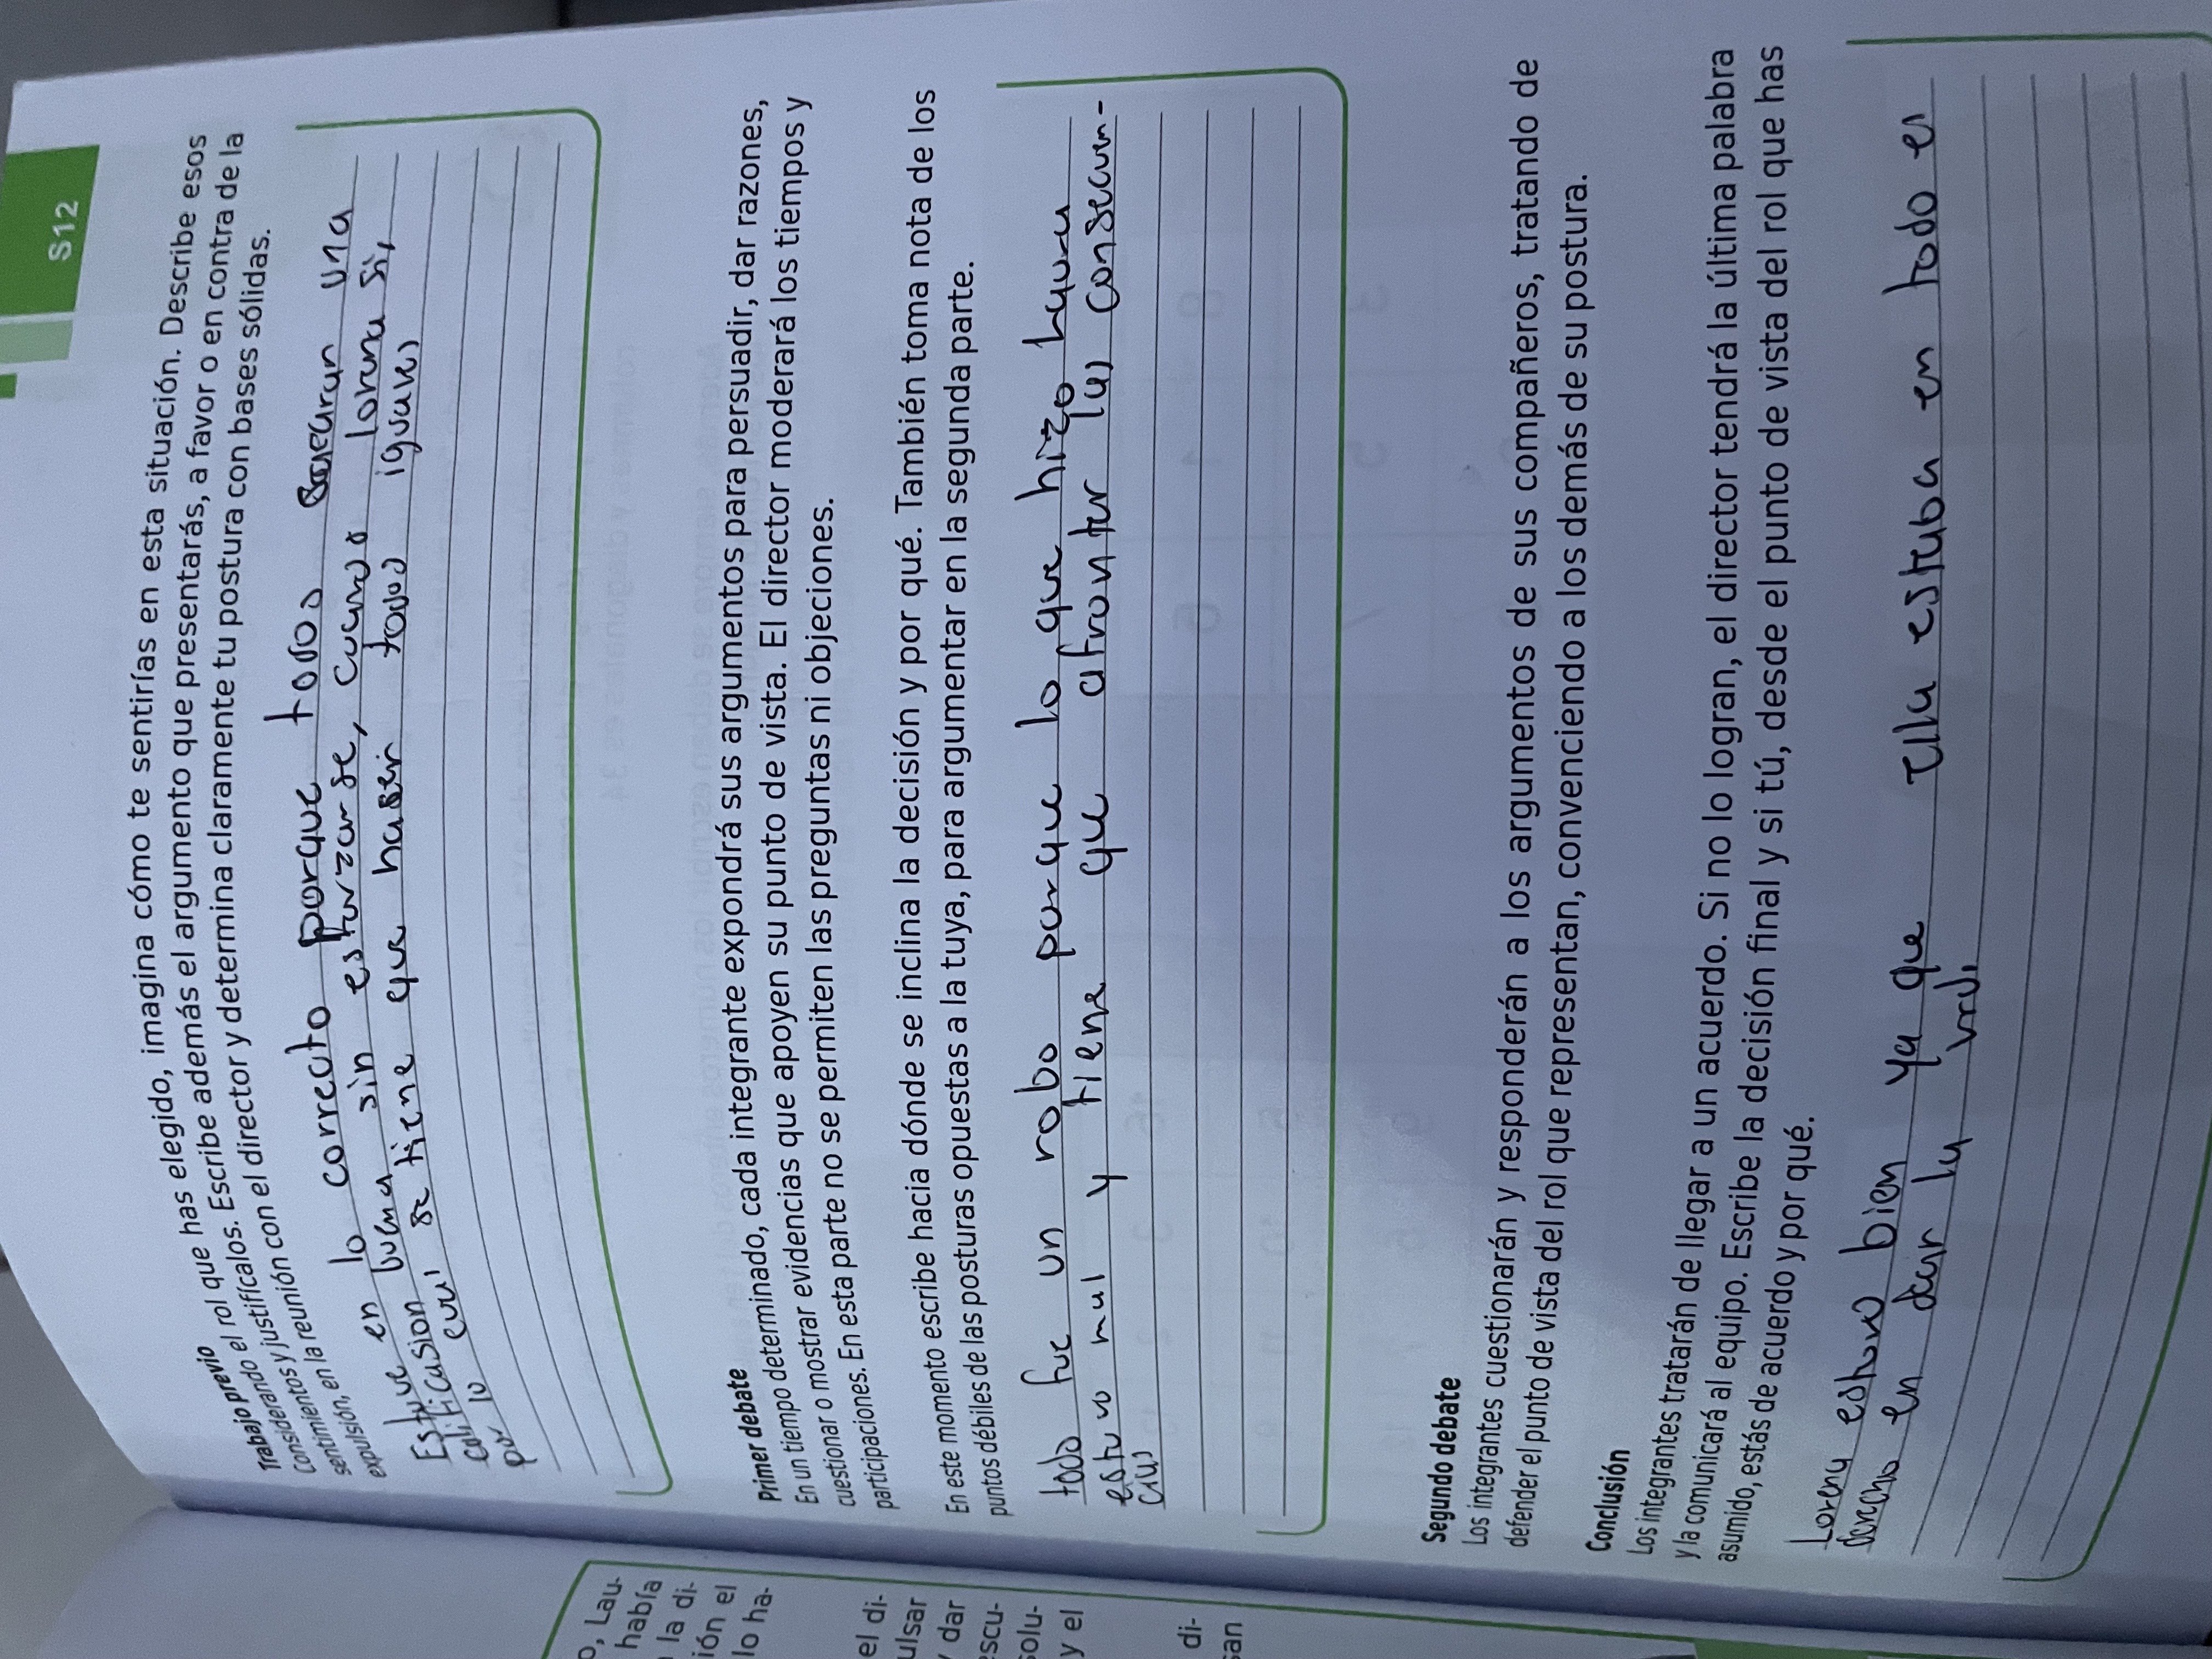 S12
Trabajo previo
Considerando el rol que has elegido, imagina cómo te sentirías en esta situación. Describe esos
sentimientos y justifícalos. Escribe además el argumento que presentarás, a favor o en contra de la
expulsión, en la reunión con el director y determina claramente tu postura con bases sólidas.
Estuve en lo correcto porque todos sacaran una
calificasion buena sin esforzarse, cuando lorena si,
por lo cual se tiene que haser todos iguales
Primer debate
En un tiempo determinado, cada integrante expondrá sus argumentos para persuadir, dar razones,
cuestionar o mostrar evidencias que apoyen su punto de vista. El director moderará los tiempos y
participaciones. En esta parte no se permiten las preguntas ni objeciones.
En este momento escribe hacia dónde se inclina la decisión y por qué. También toma nota de los
puntos débiles de las posturas opuestas a la tuya, para argumentar en la segunda parte.
todo fue un robo porque lo que hizo laura
estuvo mal y tiene que afrontar las consecuen-
cias
Segundo debate
Los integrantes cuestionarán y responderán a los argumentos de sus compañeros, tratando de
defender el punto de vista del rol que representan, convenciendo a los demás de su postura.
Conclusión
Los integrantes tratarán de llegar a un acuerdo. Si no lo logran, el director tendrá la última palabra
y la comunicará al equipo. Escribe la decisión final y si tú, desde el punto de vista del rol que has
asumido, estás de acuerdo y por qué.
Lorena estuvo bien ya que ella estaba en todo el
derecho en dar la
o, Lau-
había
la di-
ión el
lo ha-
el di-
ulsar
dar
escu-
solu-
y el
di-
san